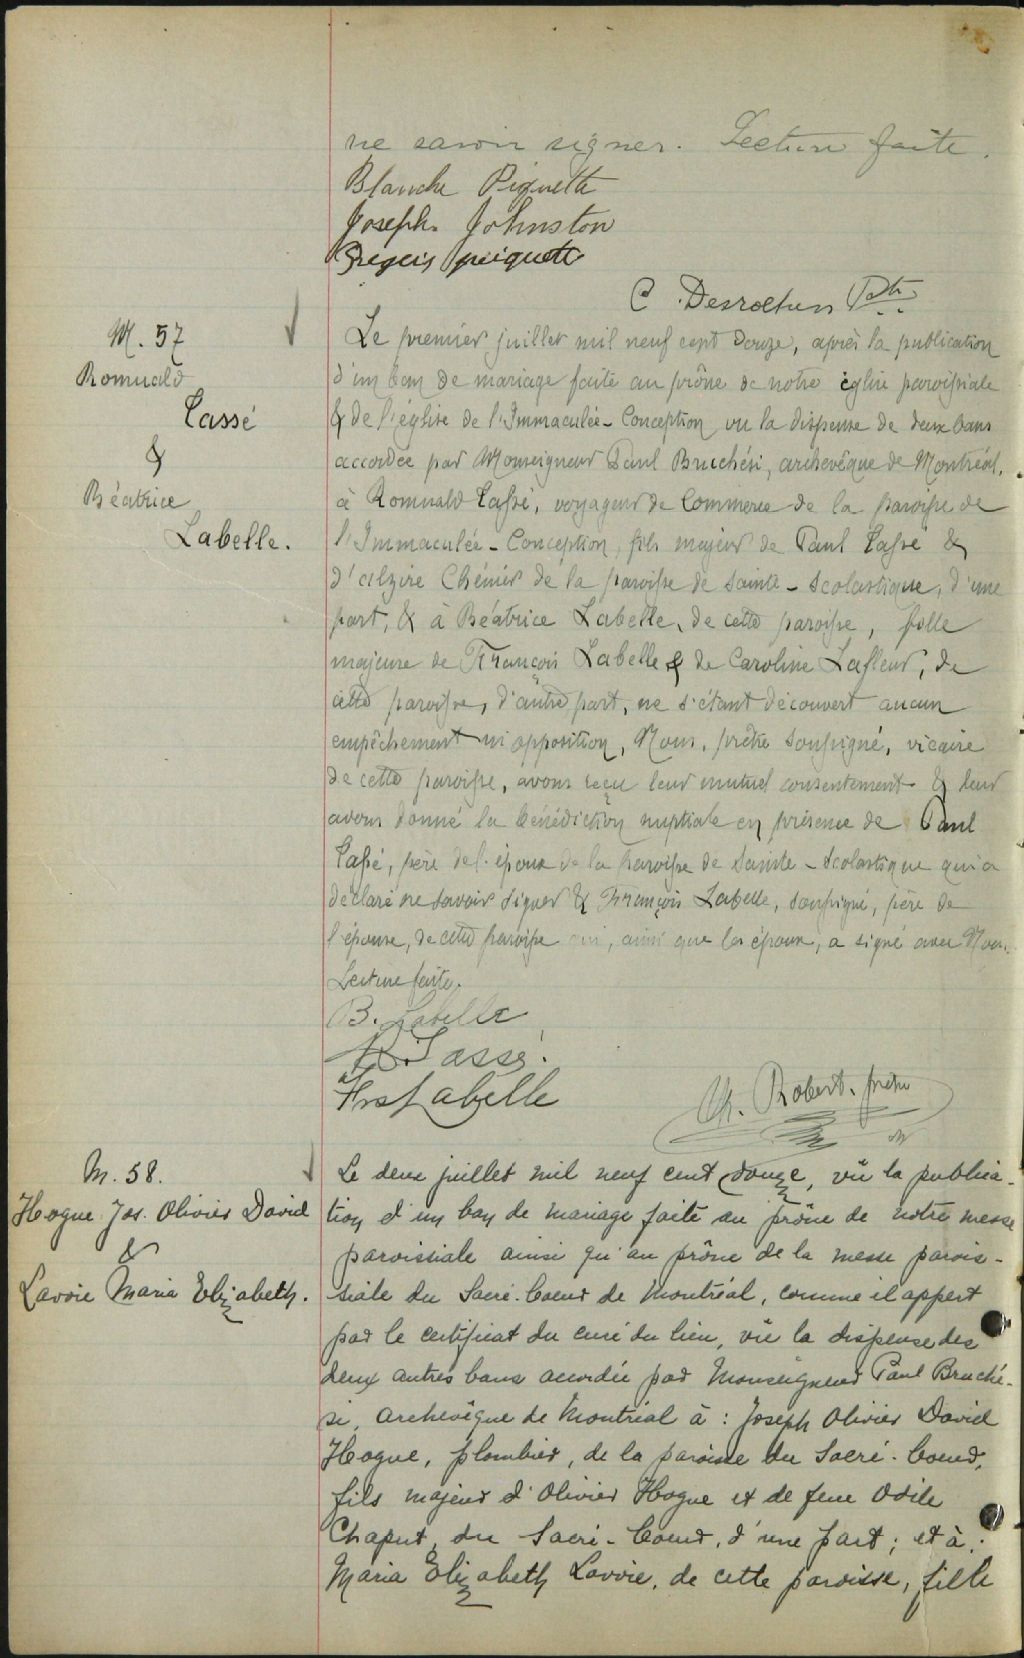 ne savoir signer. Lecture faite.
Blanche Piquette
Joseph Johnston
piquette
C. Desrochers Ptr
M. 57
Romuald
Tassé
&
Béatrice
Labelle.
Le premier juillet mil neuf cent douze, après la publication
d'un ban de mariage faite au prône de notre église paroissiale
& de l'église de l'Immaculée-Conception vu la dispense de deux bans
accordée par Monseigneur Paul Bruchési, archevêque de Montréal,
à Romuald Tassé, voyageur de commerce de la paroisse de
l'Immaculée-Conception, fils majeur de Paul Tassé &
d'Alzire Chénier de la paroisse de Sainte-Scolastique, d'une
part, & à Béatrice Labelle, de cette paroisse, fille
majeure de François Labelle & de Caroline Lafleur, de
cette paroisse, d'autre part, ne s'étant découvert aucun
empêchement ni opposition, Nous, prêtre soussigné, vicaire
de cette paroisse, avons reçu leur mutuel consentement & leur
avons donné la bénédiction nuptiale en présence de Paul
Tassé, père de l'époux de la paroisse de Sainte-Scolastique qui a
déclaré ne savoir signer & François Labelle, soussigné, père de
l'épouse, de cette paroisse qui, ainsi que les époux, a signé avec Nous.
Lecture faite.
B. Labelle
R. Tassé.
Frs Labelle
Ch. Robert, prêtre
M. 58.
Hogue Jos. Olivier David
&
Lavoie Maria Elizabeth.
Le deux juillet mil neuf cent douze, vû la publica-
tion d'un ban de mariage faite au prône de notre messe
paroissiale ainsi qu'au prône de la messe parois-
siale du Sacré-Coeur de Montréal, comme il appert
par le certificat du curé du lieu, vû la dispense des
deux autres bans accordée par Monseigneur Paul Bruché-
si, archevêque de Montréal à : Joseph Olivier David
Hogue, plombier, de la paroisse du Sacré-Coeur,
fils majeur d'Olivier Hogue et de feue Odile
Chaput, du Sacré-Coeur, d'une part ; et à :
Maria Elizabeth Lavoie, de cette paroisse, fille